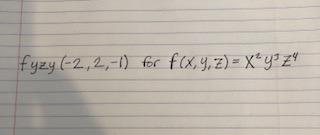 fyzy (-2, 2, -1) for f(x, y, z) = x² y³ z⁴